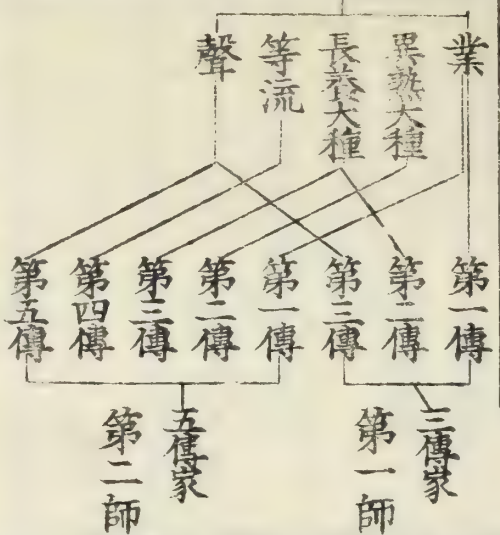 業
異熟大種
長養大種
等流
聲
第一傳
第二傳
第三傳
第一傳
第二傳
第三傳
第四傳
第五傳
三傳家
第一師
五傳家
第二師